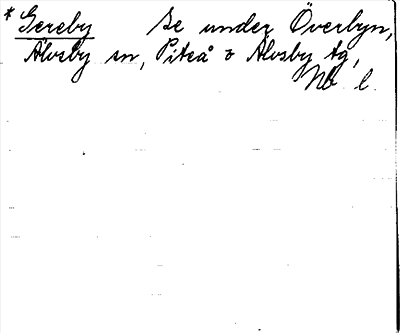 * Gereby Se under Överbyn,
Älvsby sn, Piteå o Älvsby tg,
Nb. l.